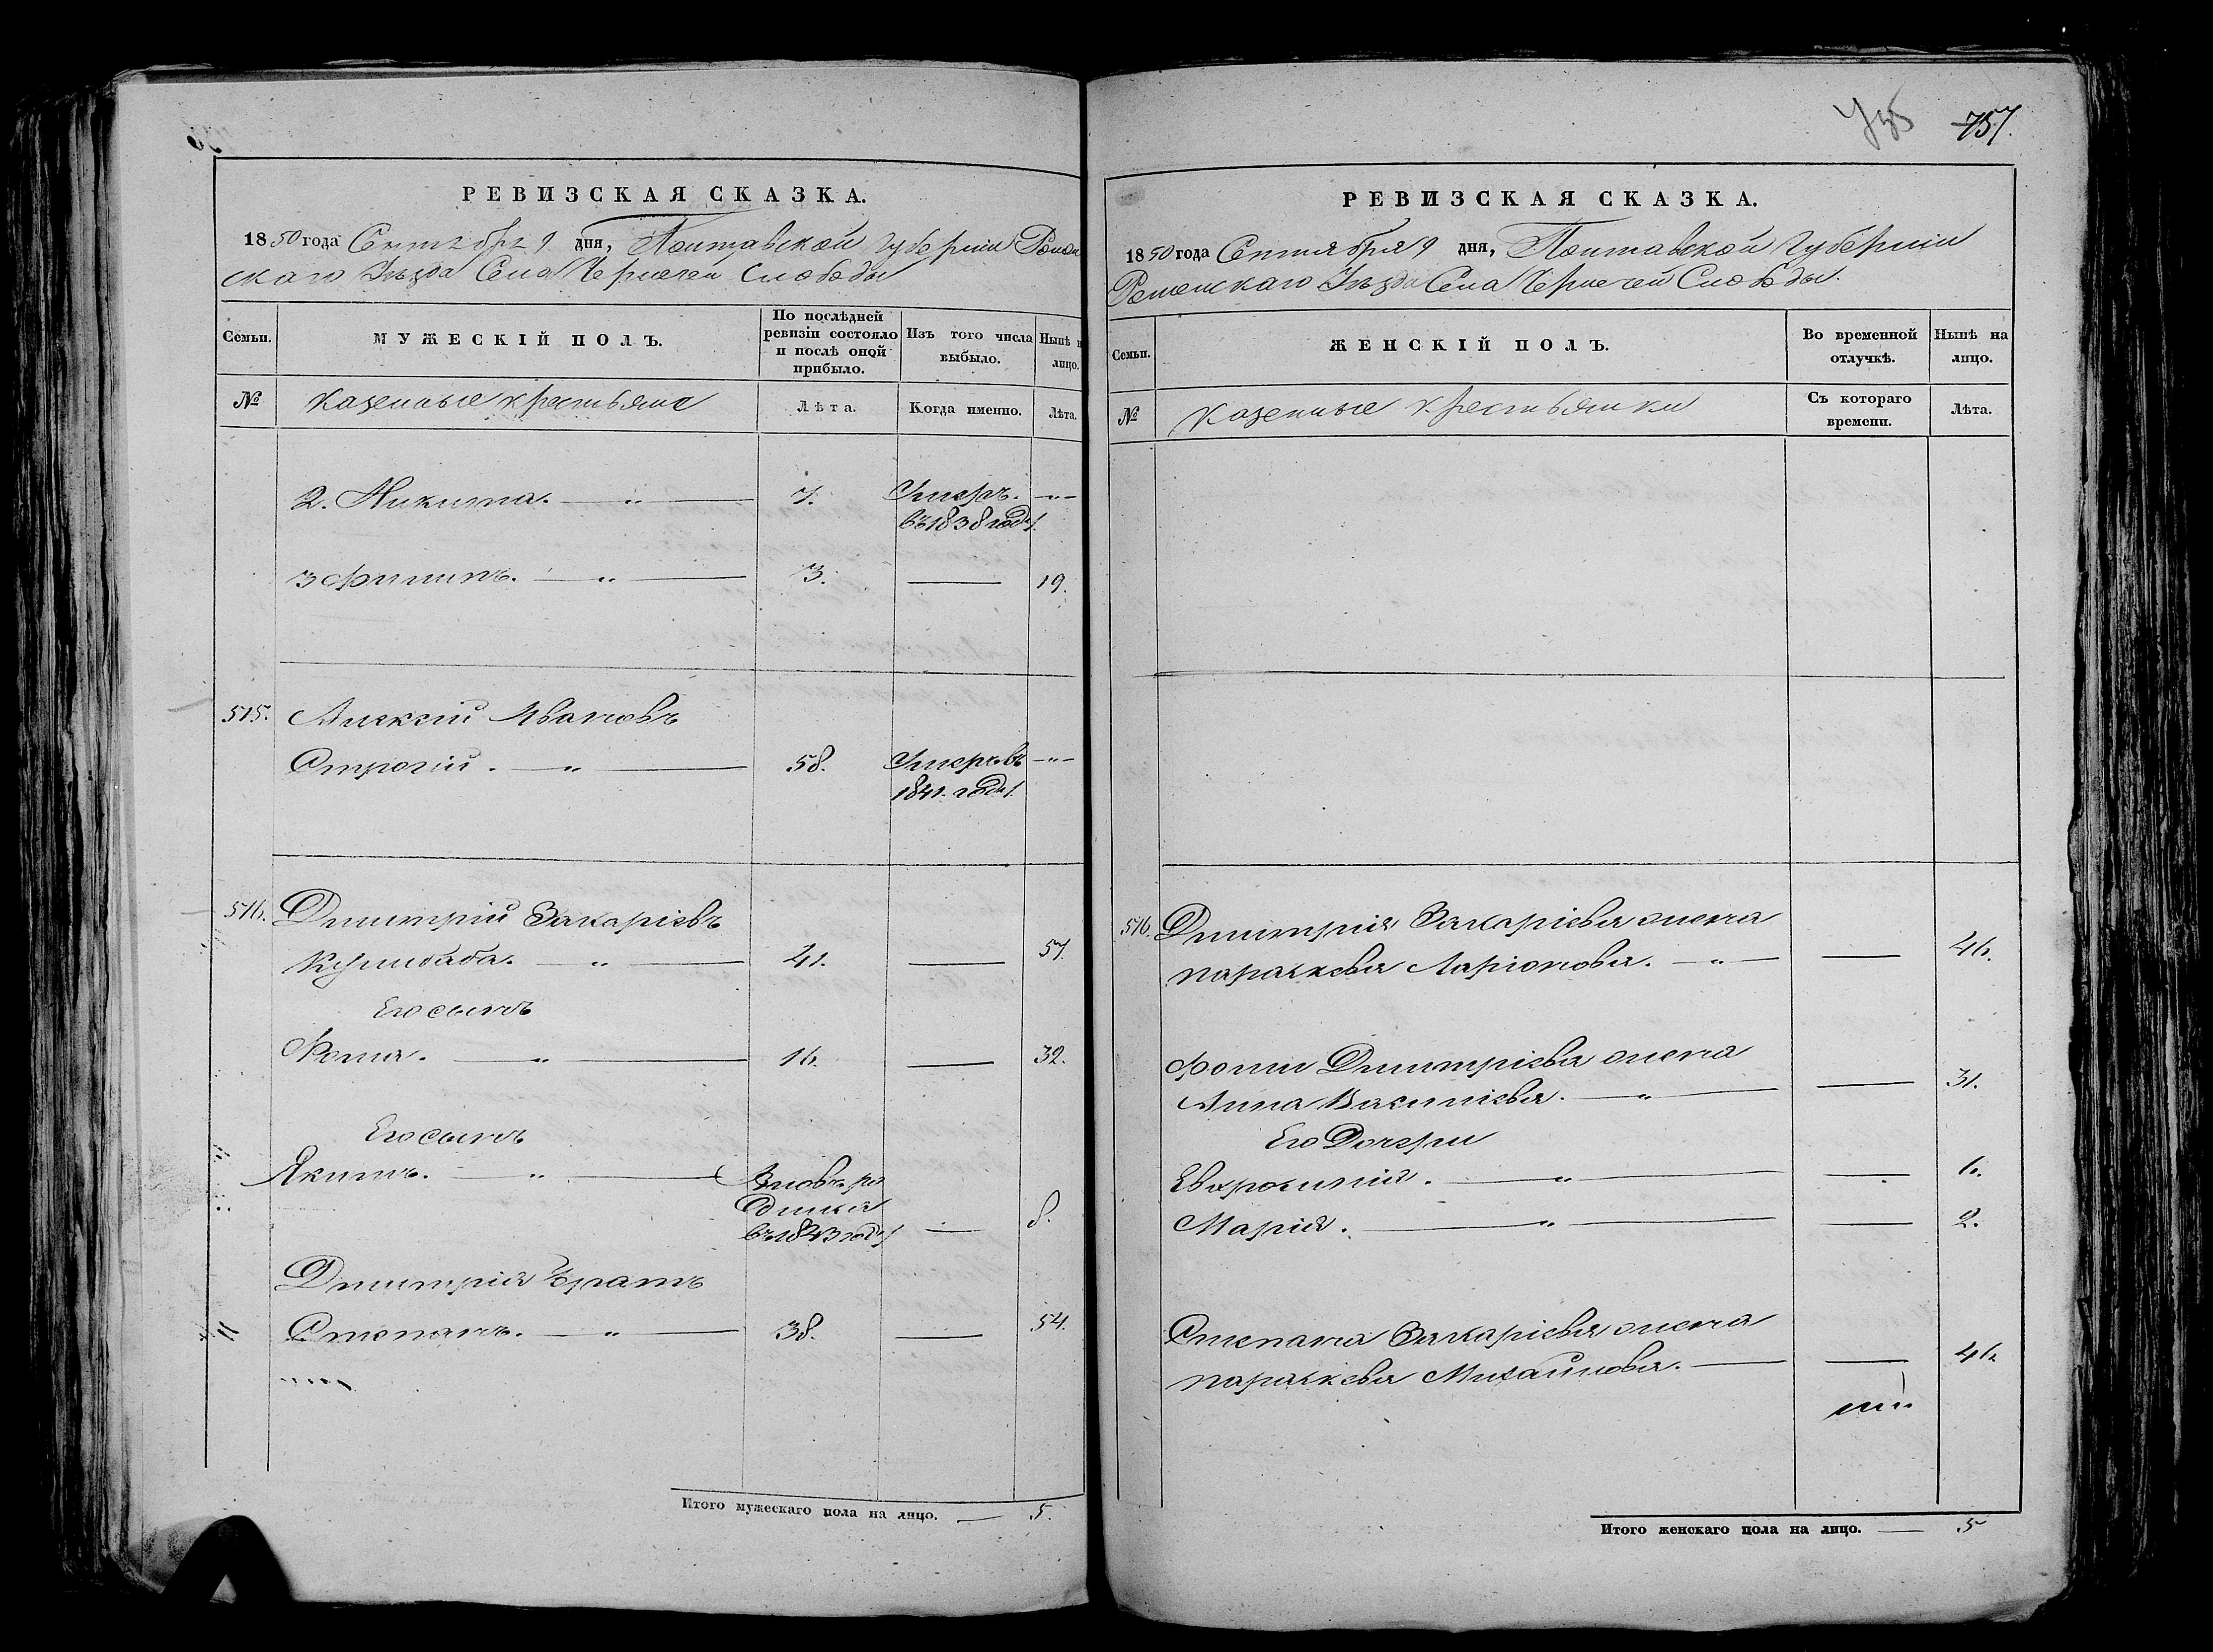 757.
РЕВИЗСКАЯ СКАЗКА.
1850 года Сентября 9 дня, Полтавской Губерніи Ромен
скаго Уѣзда Села Чернечей Слободы
Семьи.
МУЖЕСКІЙ ПОЛЪ.
По послѣдней ревизіи состояло и послѣ оной прибыло.
Изъ того числа выбыло.
Нынѣ н лицо.
№
Казенные крестьяне
Лѣта.
Когда именно.
Лѣта.
2. Никита. — „ — 7. Умеръ. — „ —
въ 1838 году.
3 Филипъ. — „ — 3. — 19.
515. Алексій Ивановъ
Строгій. — „ — 58. Умеръ въ — „ —
1841. году.
516. Дмитрій Захаріевъ
— „ — 41. — 57.
Его сынъ
Фома. — „ — 16. — 32.
Его сынъ
Якимъ. — „ — Вновь ро
дился
въ 1843 году — 8.
Дмитрія братъ
Степанъ. — „ — 38. — 54.
Итого мужескаго пола на лицо. — 5.
РЕВИЗСКАЯ СКАЗКА.
1850 года Сентября 9 дня, Полтавской Губерніи
Роменскаго Уѣзда Села Чернечей Слободы.
Семьи.
ЖЕНСКІЙ ПОЛЪ.
Во временной отлучкѣ.
Нынѣ на лицо.
№
Казенные крестьянки
Съ котораго времени.
Лѣта.
516. Дмитрія Захаріева жена
Параскева Ларіонова. — „ — — 46.
Фомы Дмитріева жена
Анна Василіева. — „ — — 31.
Его Дочери
Евфросинія. — „ — — 6.
Марія. — „ — — 2.
Степана Захаріева жена
Параскева Михайлова. — — 46
Итого женскаго пола на лицо. — 5